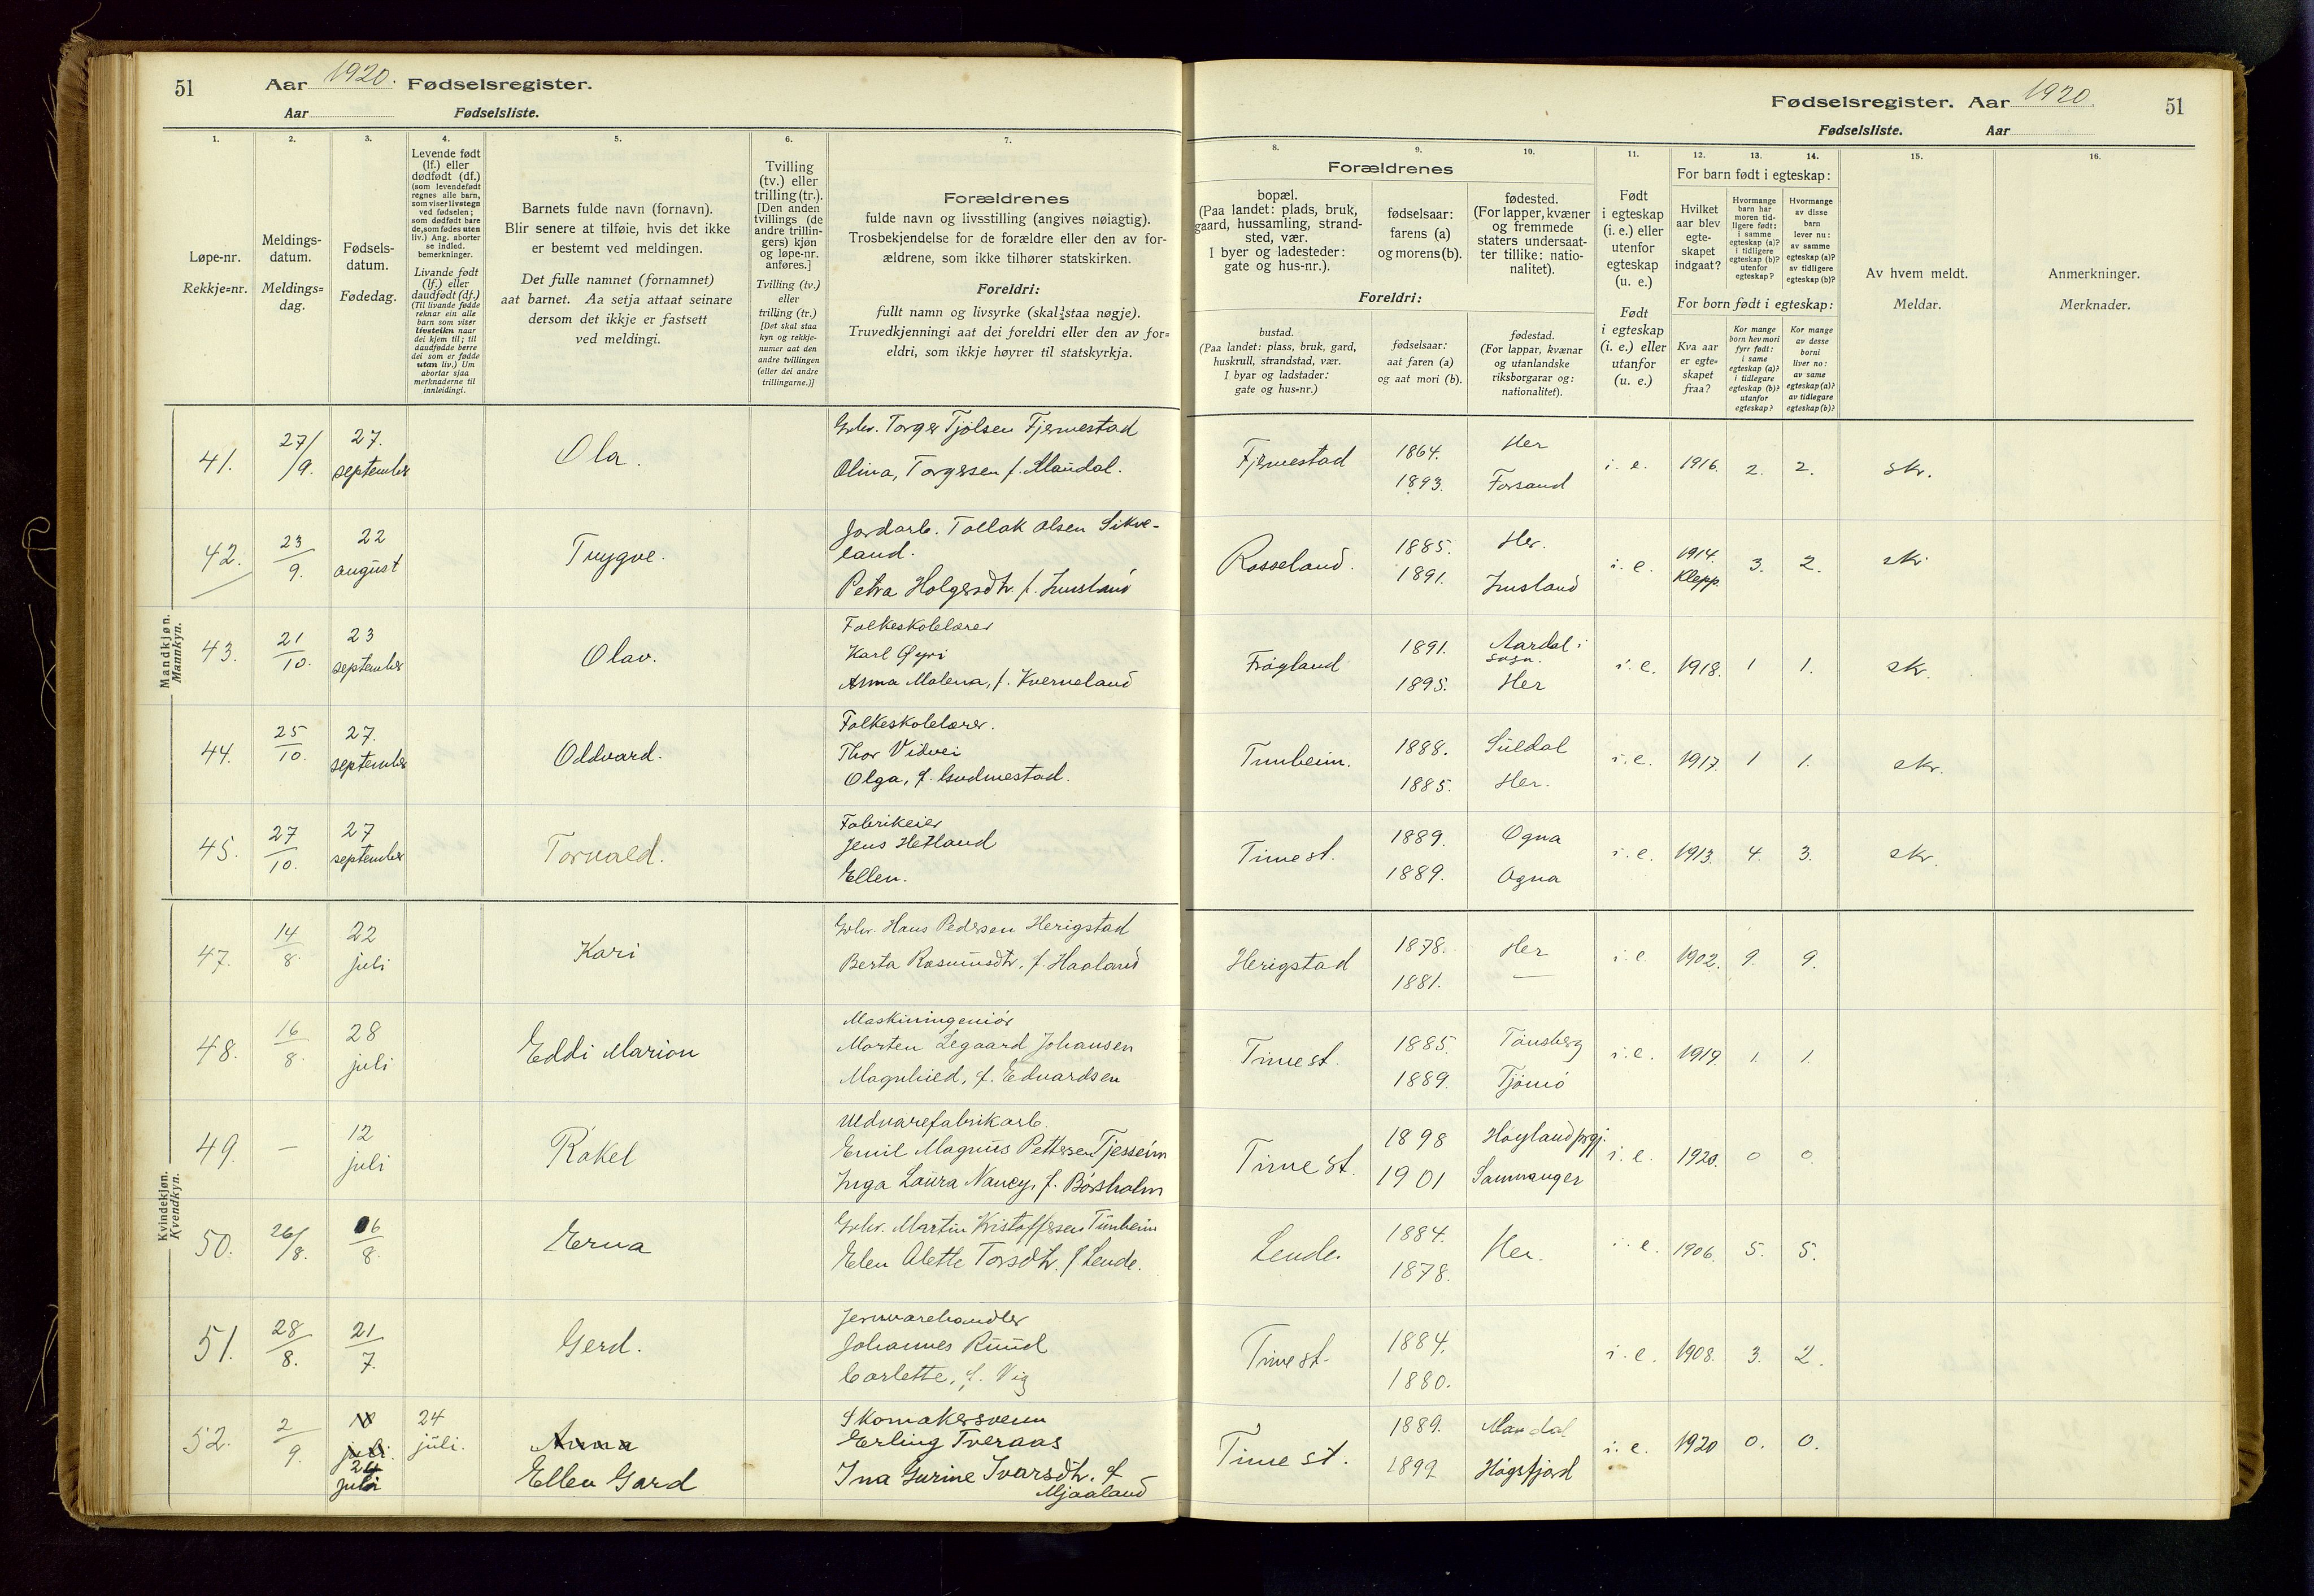 51 Aar 1920. Fødselsregister.
Aar Fødselsliste.
1. 2. 3. 4. 5. 6. 7.
Løpe-nr.
Rekkje=nr.
Meldings-
datum.
Meldings=
dag.
Fødsels-
datum.
Fødedag.
Levende født
(lf.) eller
dødfødt (df.)
(som levendefødt
regnes alle barn,
som viser livstegn
ved fødselen;
som dødfødt bare
de, som fødes uten
liv.) Ang. aborter
se indled.
bemerkninger.
Livande født
(lf.) eller
daudfødt (df.)
(Til livande fødde
reknar ein alle
barn som viser
livsteikn naar
dei kjem til; til
daudfødde berre
dei som er fødde
utan liv.) Um
abortar sjaa
merknaderne til
innleidingi.
Barnets fulde navn (fornavn).
Blir senere at tilføie, hvis det ikke
er bestemt ved meldingen.
Det fulle namnet (fornamnet)
aat barnet. Aa setja attaat seinare
dersom det ikkje er fastsett
ved meldingi.
Tvilling
(tv.) eller
trilling (tr.).
[Den anden
tvillings (de
andre trillin-
gers) kjøn
og løpe-nr.
anføres.]
Tvilling (tv.)
eller
trilling (tr.)
[Det skal staa
kyn og rekkje-
numer aat den
andre tvillingen
(eller dei andre
trillingarne.)]
Forældrenes
fulde navn og livsstilling (angives nøiagtig).
Trosbekjendelse for de forældre eller den av for-
ældrene, som ikke tilhører statskirken.
Foreldri:
fullt namn og livsyrke (skal staa nøgje).
Truvedkjenningi aat dei foreldri eller den av for=
eldri, som ikkje høyrer til statskyrkja.
Mandkjøn.
Mannkyn.
41. 27/9. 27. september Ola.
Gbr. Torger Tjølsen Fjermestad
Olina, Torgersen f. Mandal.
42. 23/9. 22 august Trygve.
Jordarb. Tollak Olsen Sikve-
land.
Petra Holgersdtr. f. Imsland
43. 21/10. 23 september Olav.
Folkeskolelærer
Karl Øyri
Anna Malena, f. Kverneland
44. 25/10. 27. september Oddvard.
Folkeskolelærer.
Thor Vidvei
Olga, f. Gudmestad.
45. 27/10. 27 september Torvald.
Fabrikeier
Jens Hetland
Ellen.
Kvindekjøn.
Kvendkyn.
47. 14/8. 22 juli Kari
Gbr. Hans Pedersen Herigstad
Berta Rasmusdtr. f. Haaland
48. 16/8. 28 juli Eddi Marion
Maskiningeniør
Morten Zegaard Johansen
Magnhild, f. Edvardsen
49. — 12 juli Rakel
Uldvarefabrikarb.
Emil Magnus Pettersen Tjesseim
Inga Laura Nancy, f. Børsholm
50. 26/8. 6/8. Erna
Gbr. Martin Kristoffersen Tunheim
Elen Alette Torsdtr. f Lende.
51. 28/8. 21/7. Gerd.
Jernvarehandler
Johannes Ruud
Carlette, f. Vig
52. 2/9. 10 juli. 24 juli 24 juli. Anna
Ellen Gard
Skomakersvenn
Erling Tveraas
Ina Gurine Ivarsdtr. f
Mjaaland
Fødselsregister. Aar 1920. 51
Fødselsliste. Aar
8. 9. 10. 11. 12. 13. 14. 15. 16.
Forældrenes
bopæl.
(Paa landet: plads, bruk,
gaard, hussamling, strand-
sted, vær.
I byer og ladesteder:
gate og hus-nr.).
fødselsaar:
farens (a)
og morens (b).
fødested.
(For lapper, kvæner
og fremmede
staters undersaat-
ter tillike: natio-
nalitet).
Foreldri:
bustad.
(Paa landet: plass, bruk, gard,
huskrull, strandstad, vær.
I byar og ladstader:
gate og hus=nr.)
fødselsaar:
aat faren (a)
og aat mori (b).
fødestad.
(For lappar, kvænar
og utanlandske
riksborgarar og:
nationalitet).
Født
i egteskap
(i. e.) eller
utenfor
egteskap
(u. e.)
Født
i egteskap
(i. e.) eller
utanfor
(u. e.)
For barn født i egteskap:
Hvilket
aar blev
egte-
skapet
indgaat?
Hvormange
barn har
moren tid-
ligere født:
i samme
egteskap (a)?
i tidligere
egteskap (b)?
utenfor
egteskap?
Hvormange
av disse
barn
lever nu:
av samme
egteskap (a)?
av tidligere
egteskap (b)?
For born født i egteskap:
Kva aar
er egte=
skapet
fraa?
Kor mange
born hev mori
fyrr født:
i same
egteskap (a)?
i tidlegare
egteskap (b)?
utanfor
egteskap?
Kor mange
av desse
borni
liver no:
av same
egteskap (a)?
av tidlegare
egteskap (b)?
Av hvem meldt.
Meldar.
Anmerkninger.
Merknader.
Fjermestad 1864. Her i. e. 1916. 2. 2. skr.
1893. Forsand
Rosseland. 1885. Her. i. e. 1914. Klepp. 3. 2. skr
1891. Imsland
Frøyland 1891. Aardal i sogn. i. e. 1918. 1 1. skr.
1895. Her
Tunheim. 1888. Suldal i. e. 1917. 1 1. skr.
1885. Her.
Time st. 1889. Ogna i. e. 1913. 4. 3. skr.
1889. Ogna
Herigstad 1878. Her i. e. 1902. 9. 9.
1881. —
Time st. 1885. Tønsberg i. e. 1919. 1. 1.
1889. Tjømø
Time st. 1898 Høyland prgj. i. e. 1920. 0 0.
1901 Samnanger
Lende. 1884. Her. i. e. 1906. 5. 5.
1878.
Time st. 1884. i. e. 1908. 3. 2.
1880.
Time st. 1889. Mandal i. e. 1920 0. 0.
1892 Høgsfjord